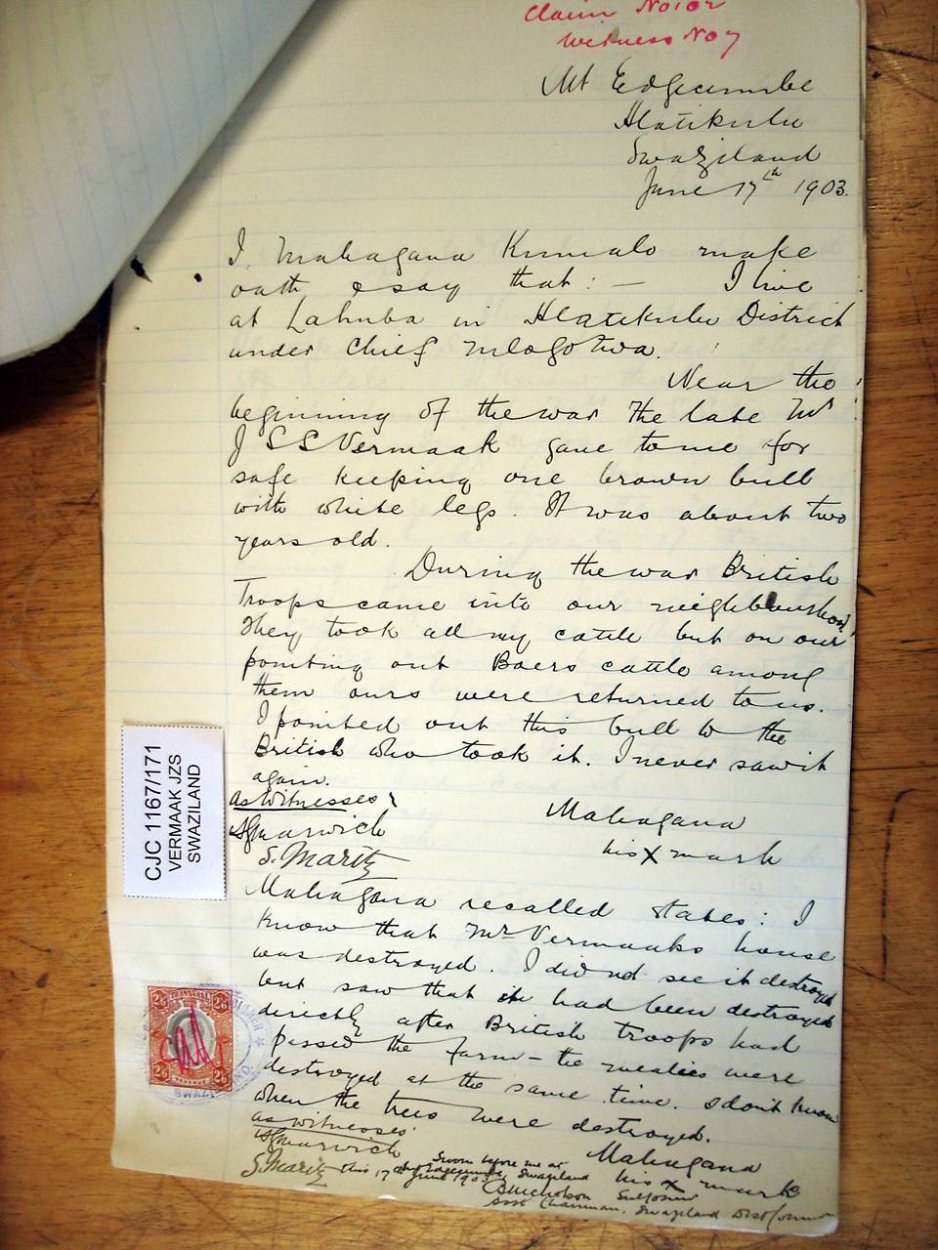 Claim No 102
Witness No 7
Mt Edgecumbe
Hlatikulu
Swaziland
June 17th 1903.
I, Mahagana Kumalo make
oath & say that: — I live
at Lahuba in Hlatikulu District
under Chief Mlogotwa.
Near the
beginning of the war the late Mr
J S S Vermaak gave to me for
safe keeping one brown bull
with white legs. It was about two
years old.
During the war British
Troops came into our neighbourhood,
They took all my cattle but on our
pointing out Boers cattle among
them ours were returned to us.
I pointed out this bull to the
British who took it. I never saw it
again.
As Witnesses
Marwick
S. Maritz
Mahagana
his X mark
Mahagana recalled states: I
know that Mr Vermaaks house
was destroyed. I did not see it destroyed
but saw that it had been destroyed
directly after British troops had
passed the farm – the mealies were
destroyed at the same time. I dont know
when the trees were destroyed.
as witnesses
Marwick
S. Maritz
Mahagana
his X mark
Sworn before me at
Mt Edgecumbe, Swaziland
this 17th June 1903
Nicholson
Asst Chairman, Swaziland Dist Comm
CJC 1167/171
VERMAAK JZS
SWAZILAND
2/6 TRANSVAAL 2/6
2/6 REVENUE 2/6